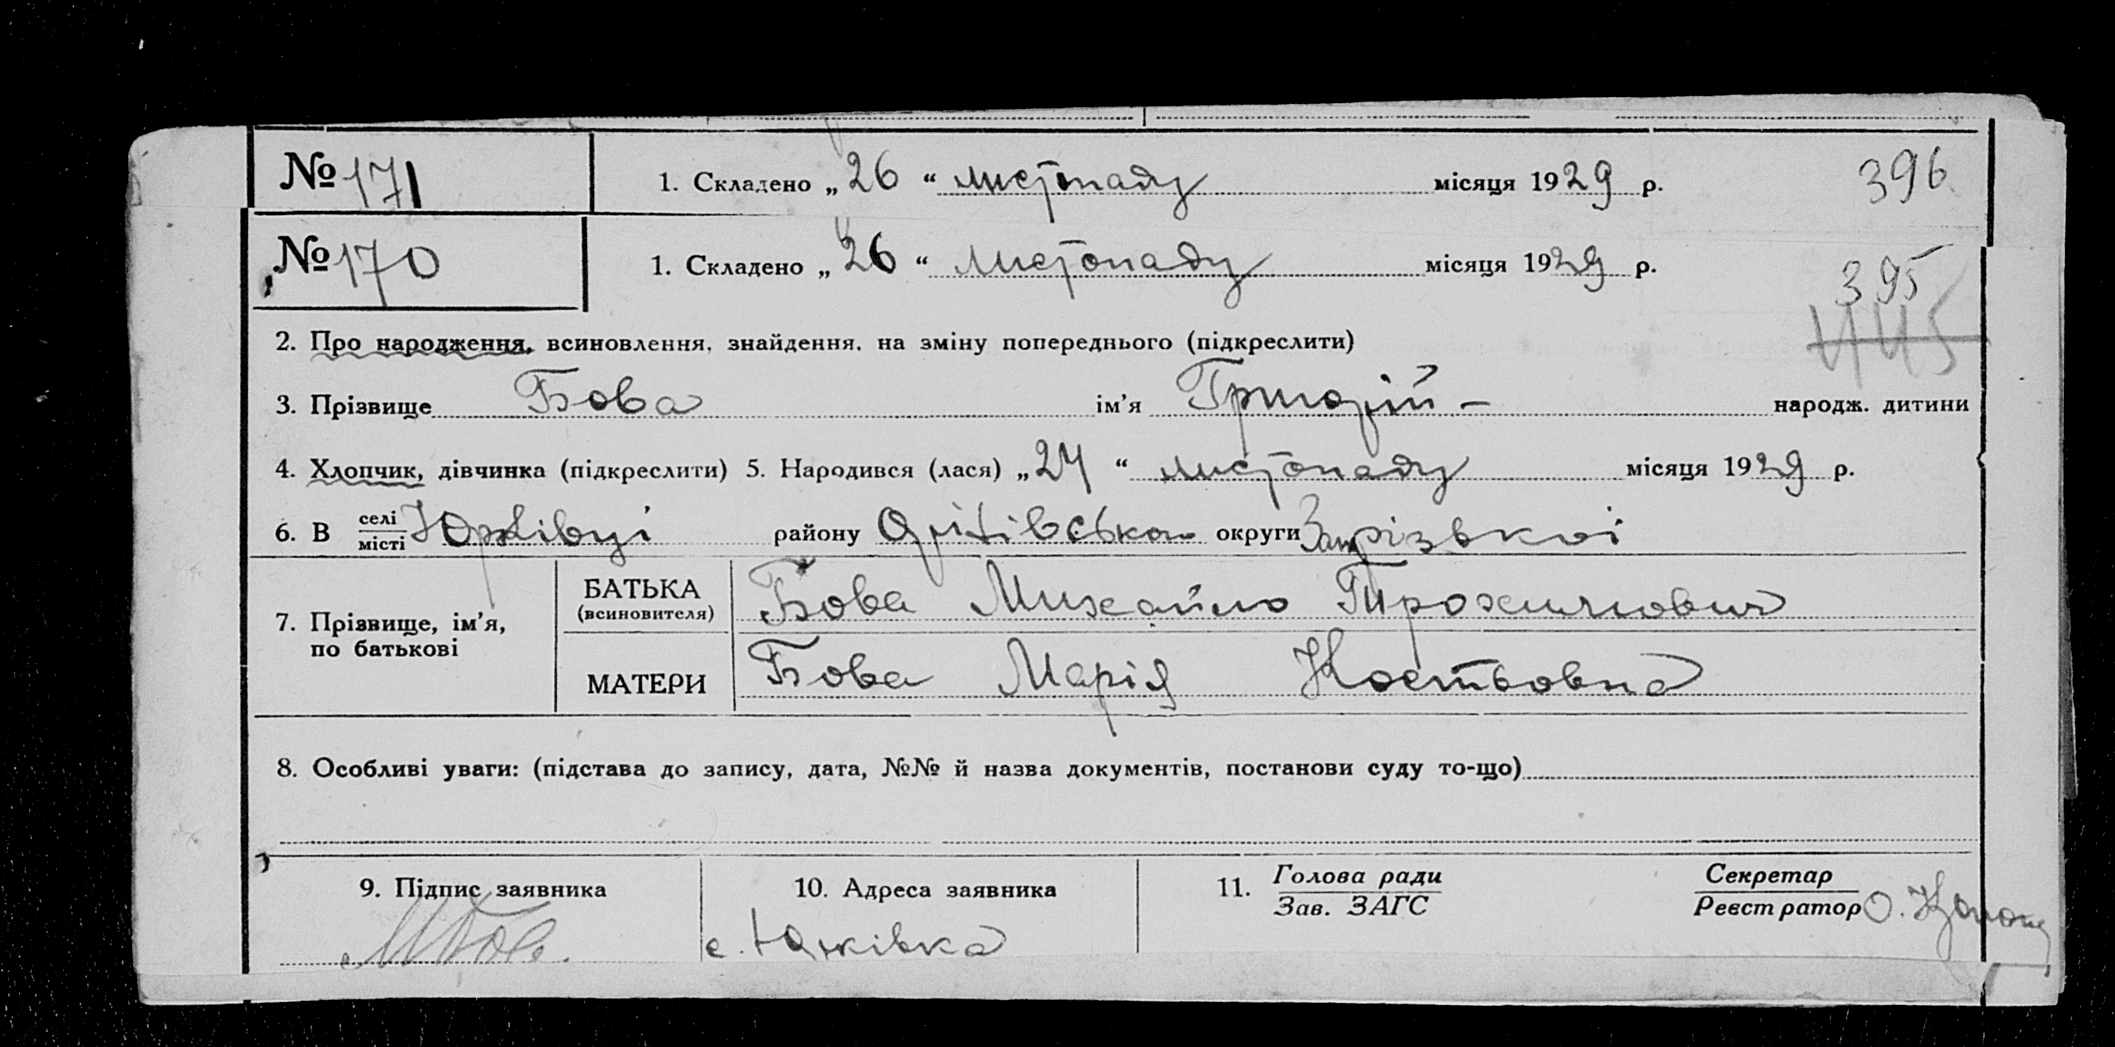 № 171 1. Складено „ 26 “ листопаду місяця 1929 р. 396
№ 170 1. Складено „ 26 “ листопаду місяця 1929 р. 395
445
2. Про народження, всиновлення, знайдення, на зміну попереднього (підкреслити)
3. Прізвище Бова ім’я Григорій – народж. дитини
4. Хлопчик, дівчинка (підкреслити) 5. Народився (лася) „ 24 “ листопаду місяця 1929 р.
6. В селі місті Юрківці району Оріхівського округи Запорізької
7. Прізвище, ім’я, по батькові
БАТЬКА (всиновителя) Бова Михайло Трохимович
МАТЕРИ Бова Марія Костьовна
8. Особливі уваги: (підстава до запису, дата, №№ й назва документів, постанови суду то-що)
9. Підпис заявника 10. Адреса заявника 11. Голова ради Секретар
Зав. ЗАГС Реєстратор О.
М Бова с. Юрківка